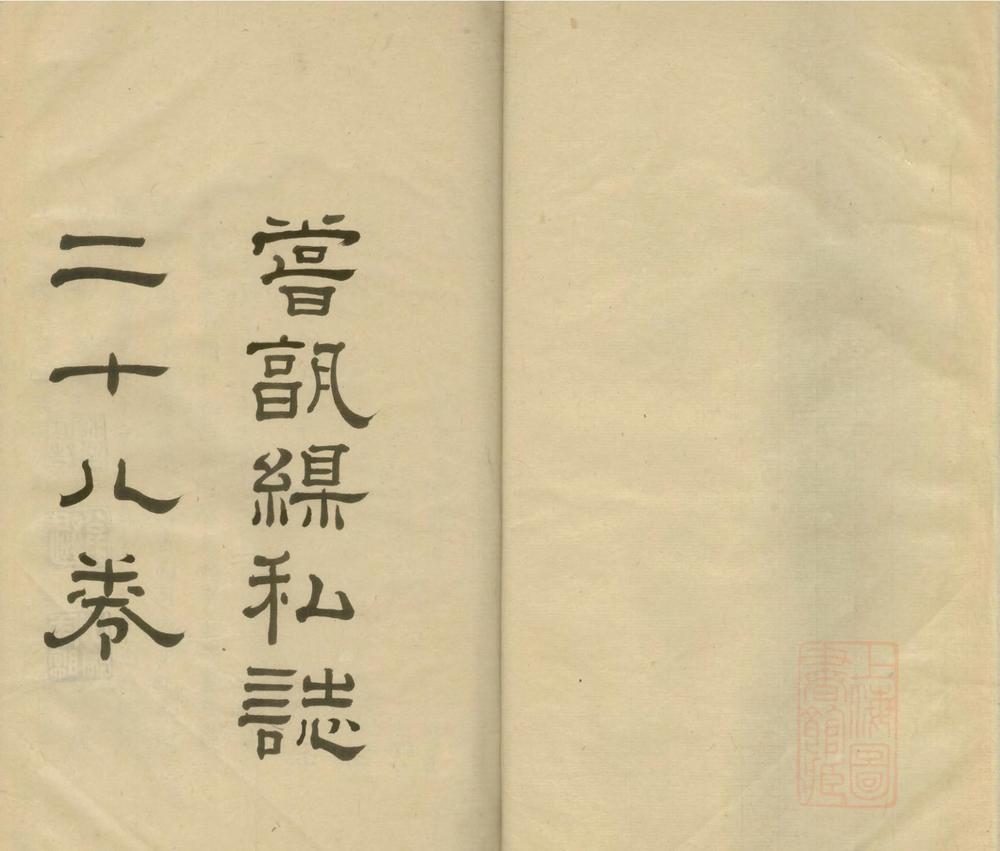 嘗 私誌
二十八卷
上海圖
書館藏